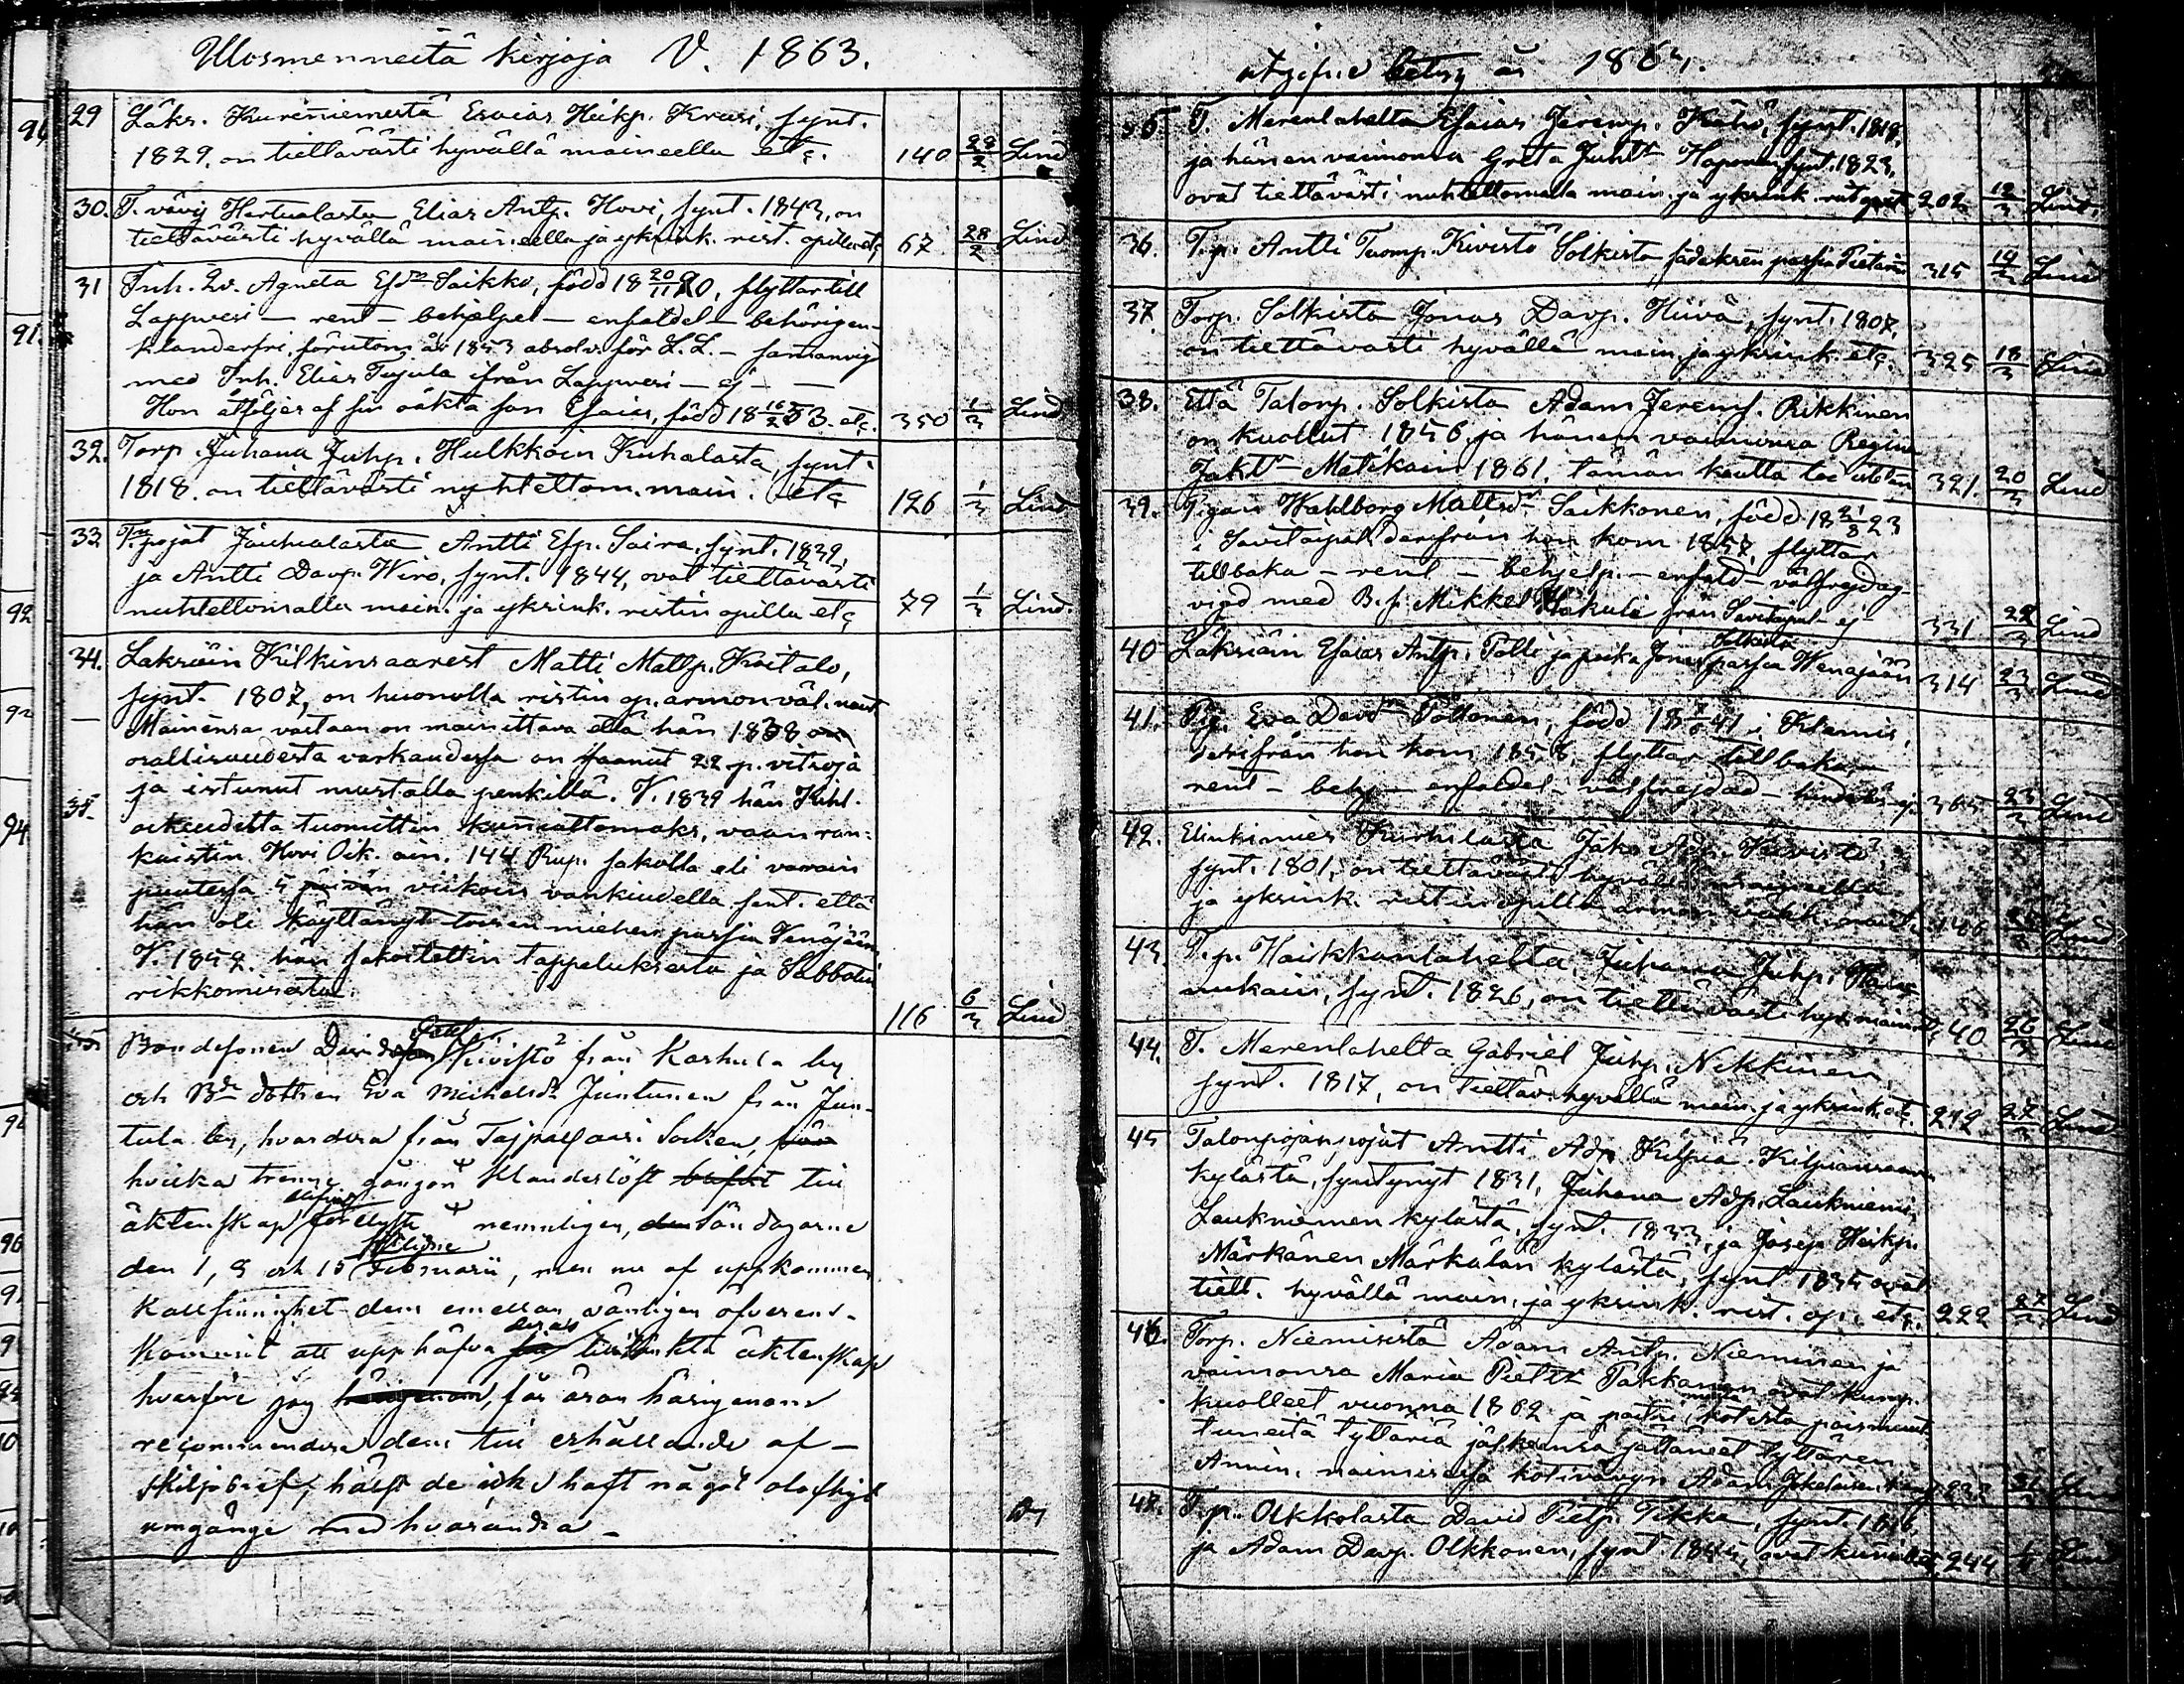 Ulosmenneitä kirjoja V. 1863.
29 Läks. Kurenniemestä Esaias Heikp. Kruusi, synt.
1829. on tiettävästi hyvällä maineella etc. 140 28/2 Lind
30. T. vävy Hertualasta Elias Antp. Hovi, synt. 1843, on
tiettävästi hyvällä maineella ja yksink. rist. opilla etc 67 28/2 Lind
31 Inh. Agneta Esdr Saikko, född 18 20/11 20, flyttar till
Lappvesi — rent — behjelpel — enfaldel — behörigen
klanderfri, förutom år 1853 absolv. för L. L. —
med Inh. Elias Tujula ifrån Lappvesi — ej — —
Hon åtföljes af sin oäkta son Esaias, född 18 16/2 53. etc. 350 1/3 Lind
32. Torp. Juhana Juhp. Hulkkoin Kuhalasta, synt.
1818. on tiettävästi nuhtettom. main. etc 126 1/3 Lind
33 T. pojat Jauhialasta Antti Esp. Saira, synt. 1839,
ja Antti Davp. Wiro, synt. 1844, ovat tiettävästi
nuhtettomalla main. ja yksink. ristin opilla etc 79 1/3 Lind.
34. Läksiäin Kilkinsaarest Matti Mattp. Koitalo,
synt. 1807, on huonolla ristin op. armon väl. naut
— Mainensa vastaan on mainittava että hän 1838
osallisuudesta varkaudessa on saanut 22 p. vitsoja
ja istunut mustalla penkillä. V. 1839 hän Kihl.
oikeudetta tuomittiin kunniattomaks, vaan ran-
kaistiin Hovi Oik. 144 Rup. sakolla eli varain
puutessa 4 päivän viikoin vankiudella sent. että
hän oli käyttänyt toisen miehen passia Venäjään
V. 1842. hän sakoitettiin tappeluksesta ja Sabbatin
rikkomisesta. 116 6/3 Lind
Bondesonen David Kivistö från Karhula by
och Bde dottren Eva Michelsdr Juntunen från Jun-
tula by, hvardera från Taipalsaari Socken,
hvilka trenne gångor klanderlöst till
äktenskap nemnligen, Söndagarne
den 1, 8 och 15 Februarii, men nu af uppkommen
kallsinnighet dem emellan vänligen öfverens-
kommit att upphäfva deras tilltänkta äktenskap
hvarföre jag får äran härigenom
recommendera dem till erhållande af —
skiljobref, hälst de icke haft något olofligt
umgänge med hvarandra —
utgifne betyg år 1863.
35. T. Merenlahelta Esaias Jeremp. synt. 1818,
ja hänen vaimonsa Greta Juhtr Haponen synt. 1823,
ovat tiettävästi nuhtettomalla main. ja yksink. 202 12/3 Lind.
36. T.p. Antti Tuomp. Kivistö Solkista passia Pietarin 315 14/3 Lind
37. Torp. Solkista Jonas Davp. Hüvä, synt. 1807,
on tiettävästi hyvällä main. ja yksink. etc. 325 18/3 Lind
38. Että Talonp. Solkista Adam Jeremp. Rikkinen
on kuollut 1856. ja hänen vaimonsa Regina
Jaktr Matikain 1861. tämän kautta 321. 20/3 Lind
39. Pigan Wahlborg Mattsdr Saikkonen, född 18 21/8 23
i Savitaipal, derifrån hon kom 1857, flyttar
tillbaka — rent — behjelp. — enfald — välfrejdag —
vigd med B.s. Mikkel från Savitaipal — ej — 331 22/3 Lind
40 Läksiäin Esaias Antp. Polli ja poika Jonas Solkista passia Wenajään 314 23/3 Lind
41. Pig. Eva Davdr Töttönen, född 41 i Klemis,
derifrån hon kom 1858, flyttar tillbaka —
rent — behj. — enfaldel — välfrejdad — ej 365 23/3 Lind
42. Elinkimies Kurhilasta Jako Adp. Kivistö
synt. 1801, on tiettävästi hyvällä maineella
ja yksink. ristin opilla armon 166 Lind
43. T.p. Haikkanlahelta, Juhana Juhp.
synt. 1826, on tiettävästi hyv. main. 40 26/3 Lind
44. T. Merenlahelta Gabriel Juhp. Nikkinen,
synt. 1817, on tiettäv. hyvällä main. ja yksink. etc. 212 27/3 Lind
45 Talonpojan pojat Antti Adp. Kilpiä Kilpiänsaaren
kylästä, syntynyt 1831, Juhana Adp. Laukniemi,
Laukniemen kylästä, synt. 1833, ja Josep Heikp.
Märkänen Märkälän kylästä, synt 1835 ovat
tiett. hyvällä main. ja yksink. rist. op. etc. 222 27/3 Lind
46. Torp. Niemisistä Adam Antp. Nieminen ja
vaimonsa Maria Piettr Pakkanen ovat kump.
kuolleet vuonna 1862 ja paitsi muita kotoota poismuut-
tuneita tyttäriä jälkeensä jättäneet tyttären
Annin, naimisissa kotivävyn Adam 232 31/3 Lind
48. T.p. Olkkolasta David Pietp. Tikka, synt. 1816,
ja Adam Davp. Olkkonen, synt 1845, ovat 244 Lind